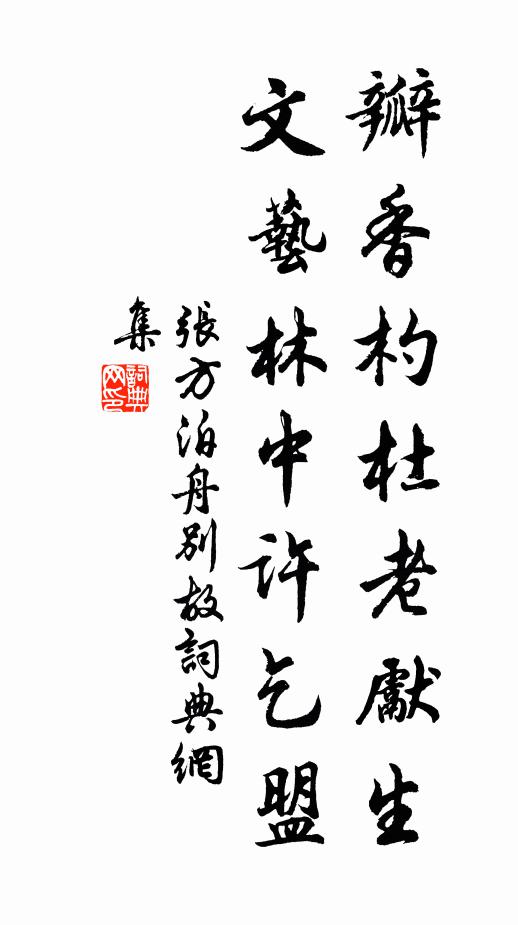 瓣香杓杜老獻生
文藝林中許乞盟
張方泊舟別故詞典網
集
詞典網印